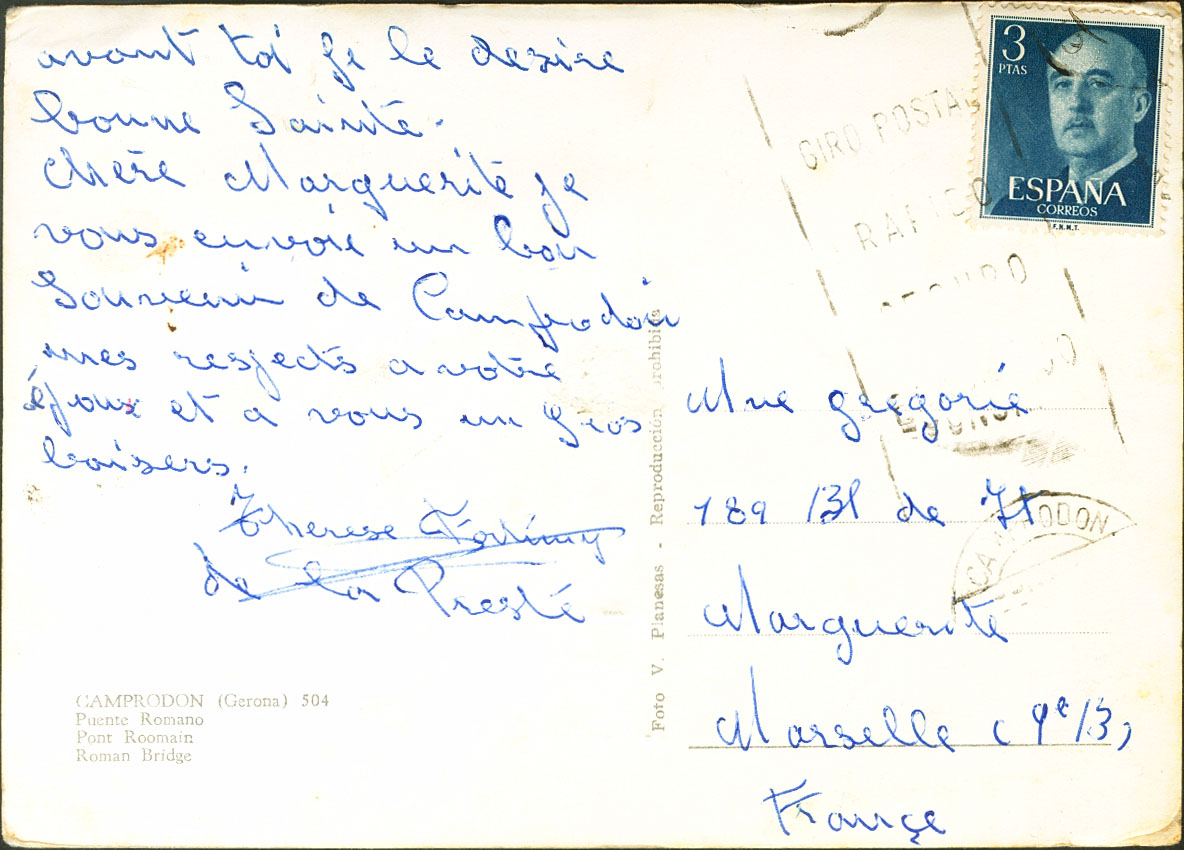 avant toi je le desire
bonne Sainte.
chère Marguerite je
vous envoie un bon
Souvenir de Camprodon
mes respects a votre
époux et a vous un gros
baisers.
Therese
de la Preste
CAMPRODON (Gerona) 504
Puente Romano
Pont Roomain
Roman Bridge
Foto V. Planesas - Reproducción prohibida
3
PTAS
ESPAÑA
CORREOS
F.N.M.T.
GIRO POSTAL
RAPIDO
CAMPRODON
Mme gregorie
189 Bl de St
Marguerite
Marselle (9e B)
France